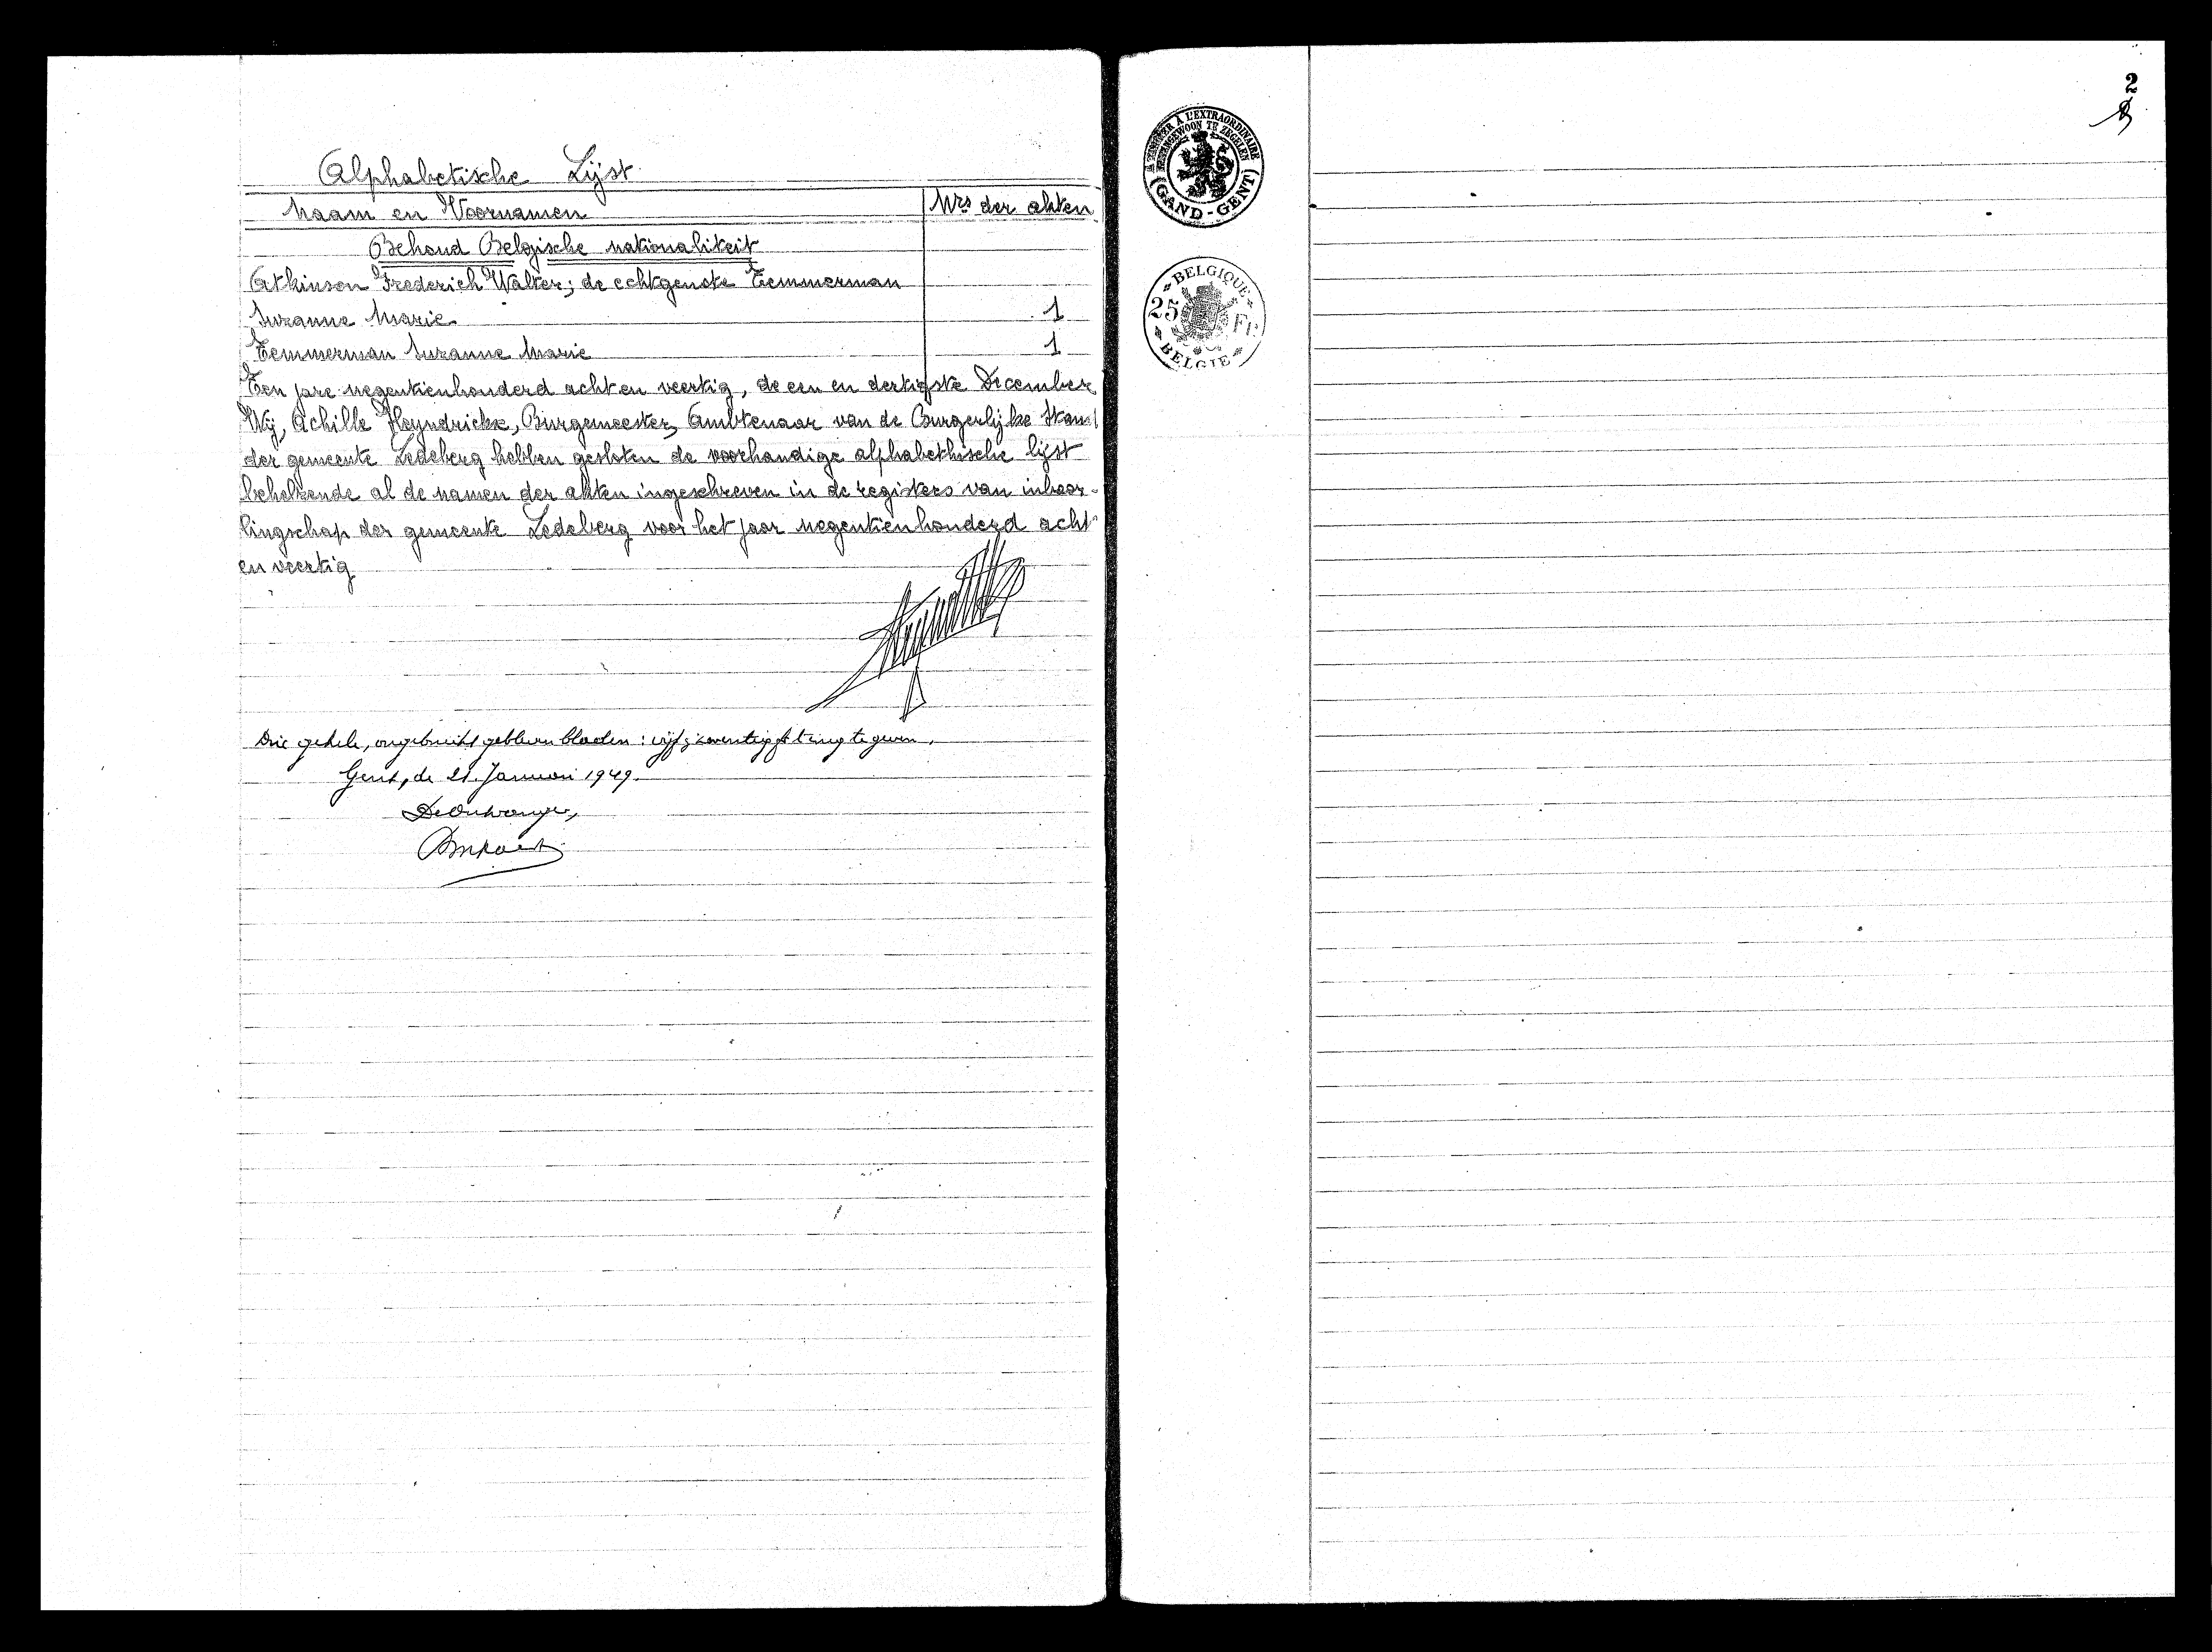 Alphabetische Lijst
Naam en Voornamen
Nrs der akten
Behoud Belgische nationaliteit
Atkinson Frederich Walter; de echtgenote Temmerman
Suzanne Marie 1
Temmerman Suzanne Marie 1
Ten jare negentienhonderd acht en veertig, de een en dertigste December
Wij, Achille Heyndrickx, Burgemeester, Ambtenaar van de Burgerlijke Stand
der gemeente Ledeberg hebben gesloten de voorhandige alphabethische lijst
behelzende al de namen der akten ingeschreven in de registers van inboor-
lingschap der gemeente Ledeberg voor het jaar negentienhonderd acht
en veertig
Drie gehele, ongebruikt gebleven bladen: vijf zeventig fr terug te geven.
Gent, de 21. Januari 1949.
De Ontvanger,
2
A L'EXTRAORDINAIRE
BUITENGEWOON TE ZEGELEN
(GAND-GENT)
BELGIQUE
25 FR
BELGIE